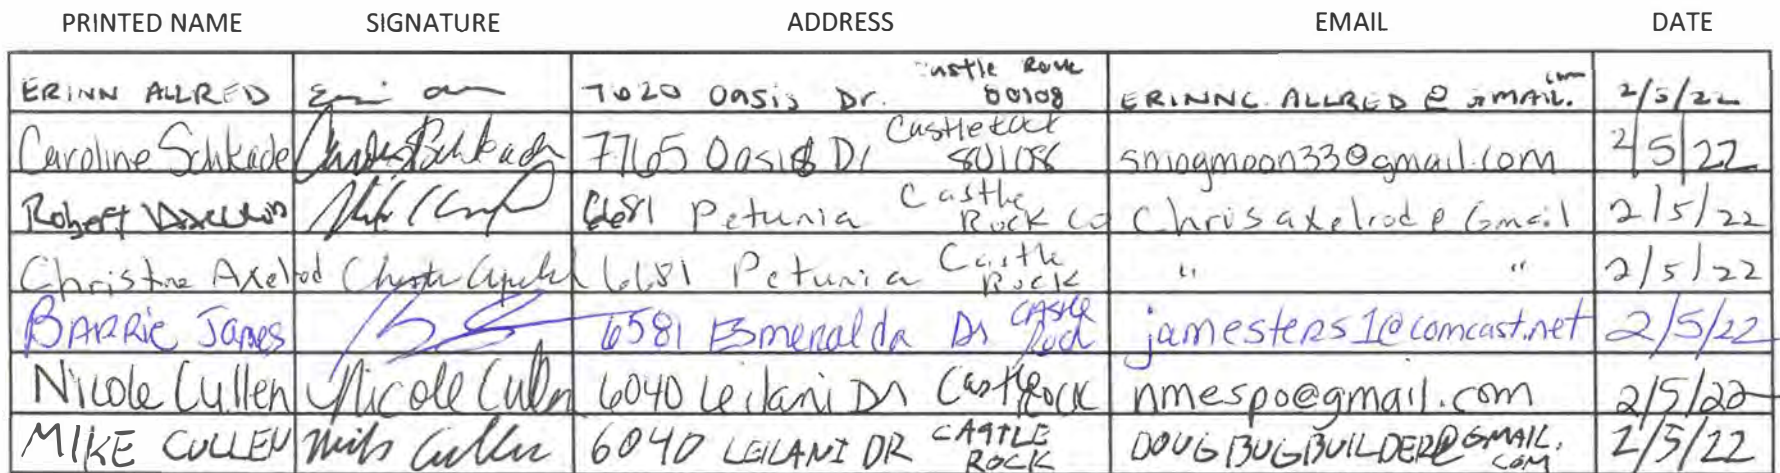 PRINTED NAME SIGNATURE ADDRESS EMAIL DATE
ERINN ALLRED 7020 Oasis Dr. Castle Rock 80108 ERINNC.ALLRED@GMAIL.com 2/5/22
Caroline Schkade 7765 Oasis Dr Castle Rock 80108 smogmoon33@gmail.com 2/5/22
Robert 6681 Petunia Castle Rock Co Chrisaxelrod@Gmail 2/5/22
Christine Axelrod 6681 Petunia Castle Rock " " 2/5/22
BARRIE James 6581 Esmeralda Dr CASTLE Rock jamesters1@comcast.net 2/5/22
Nicole Cullen Nicole Cullen 6040 Leilani Dr Castle Rock nmespo@gmail.com 2/5/22
MIKE CULLEN Mike Cullen 6040 LEILANI DR CASTLE ROCK DOUGBUGBUILDER@GMAIL.COM 2/5/22